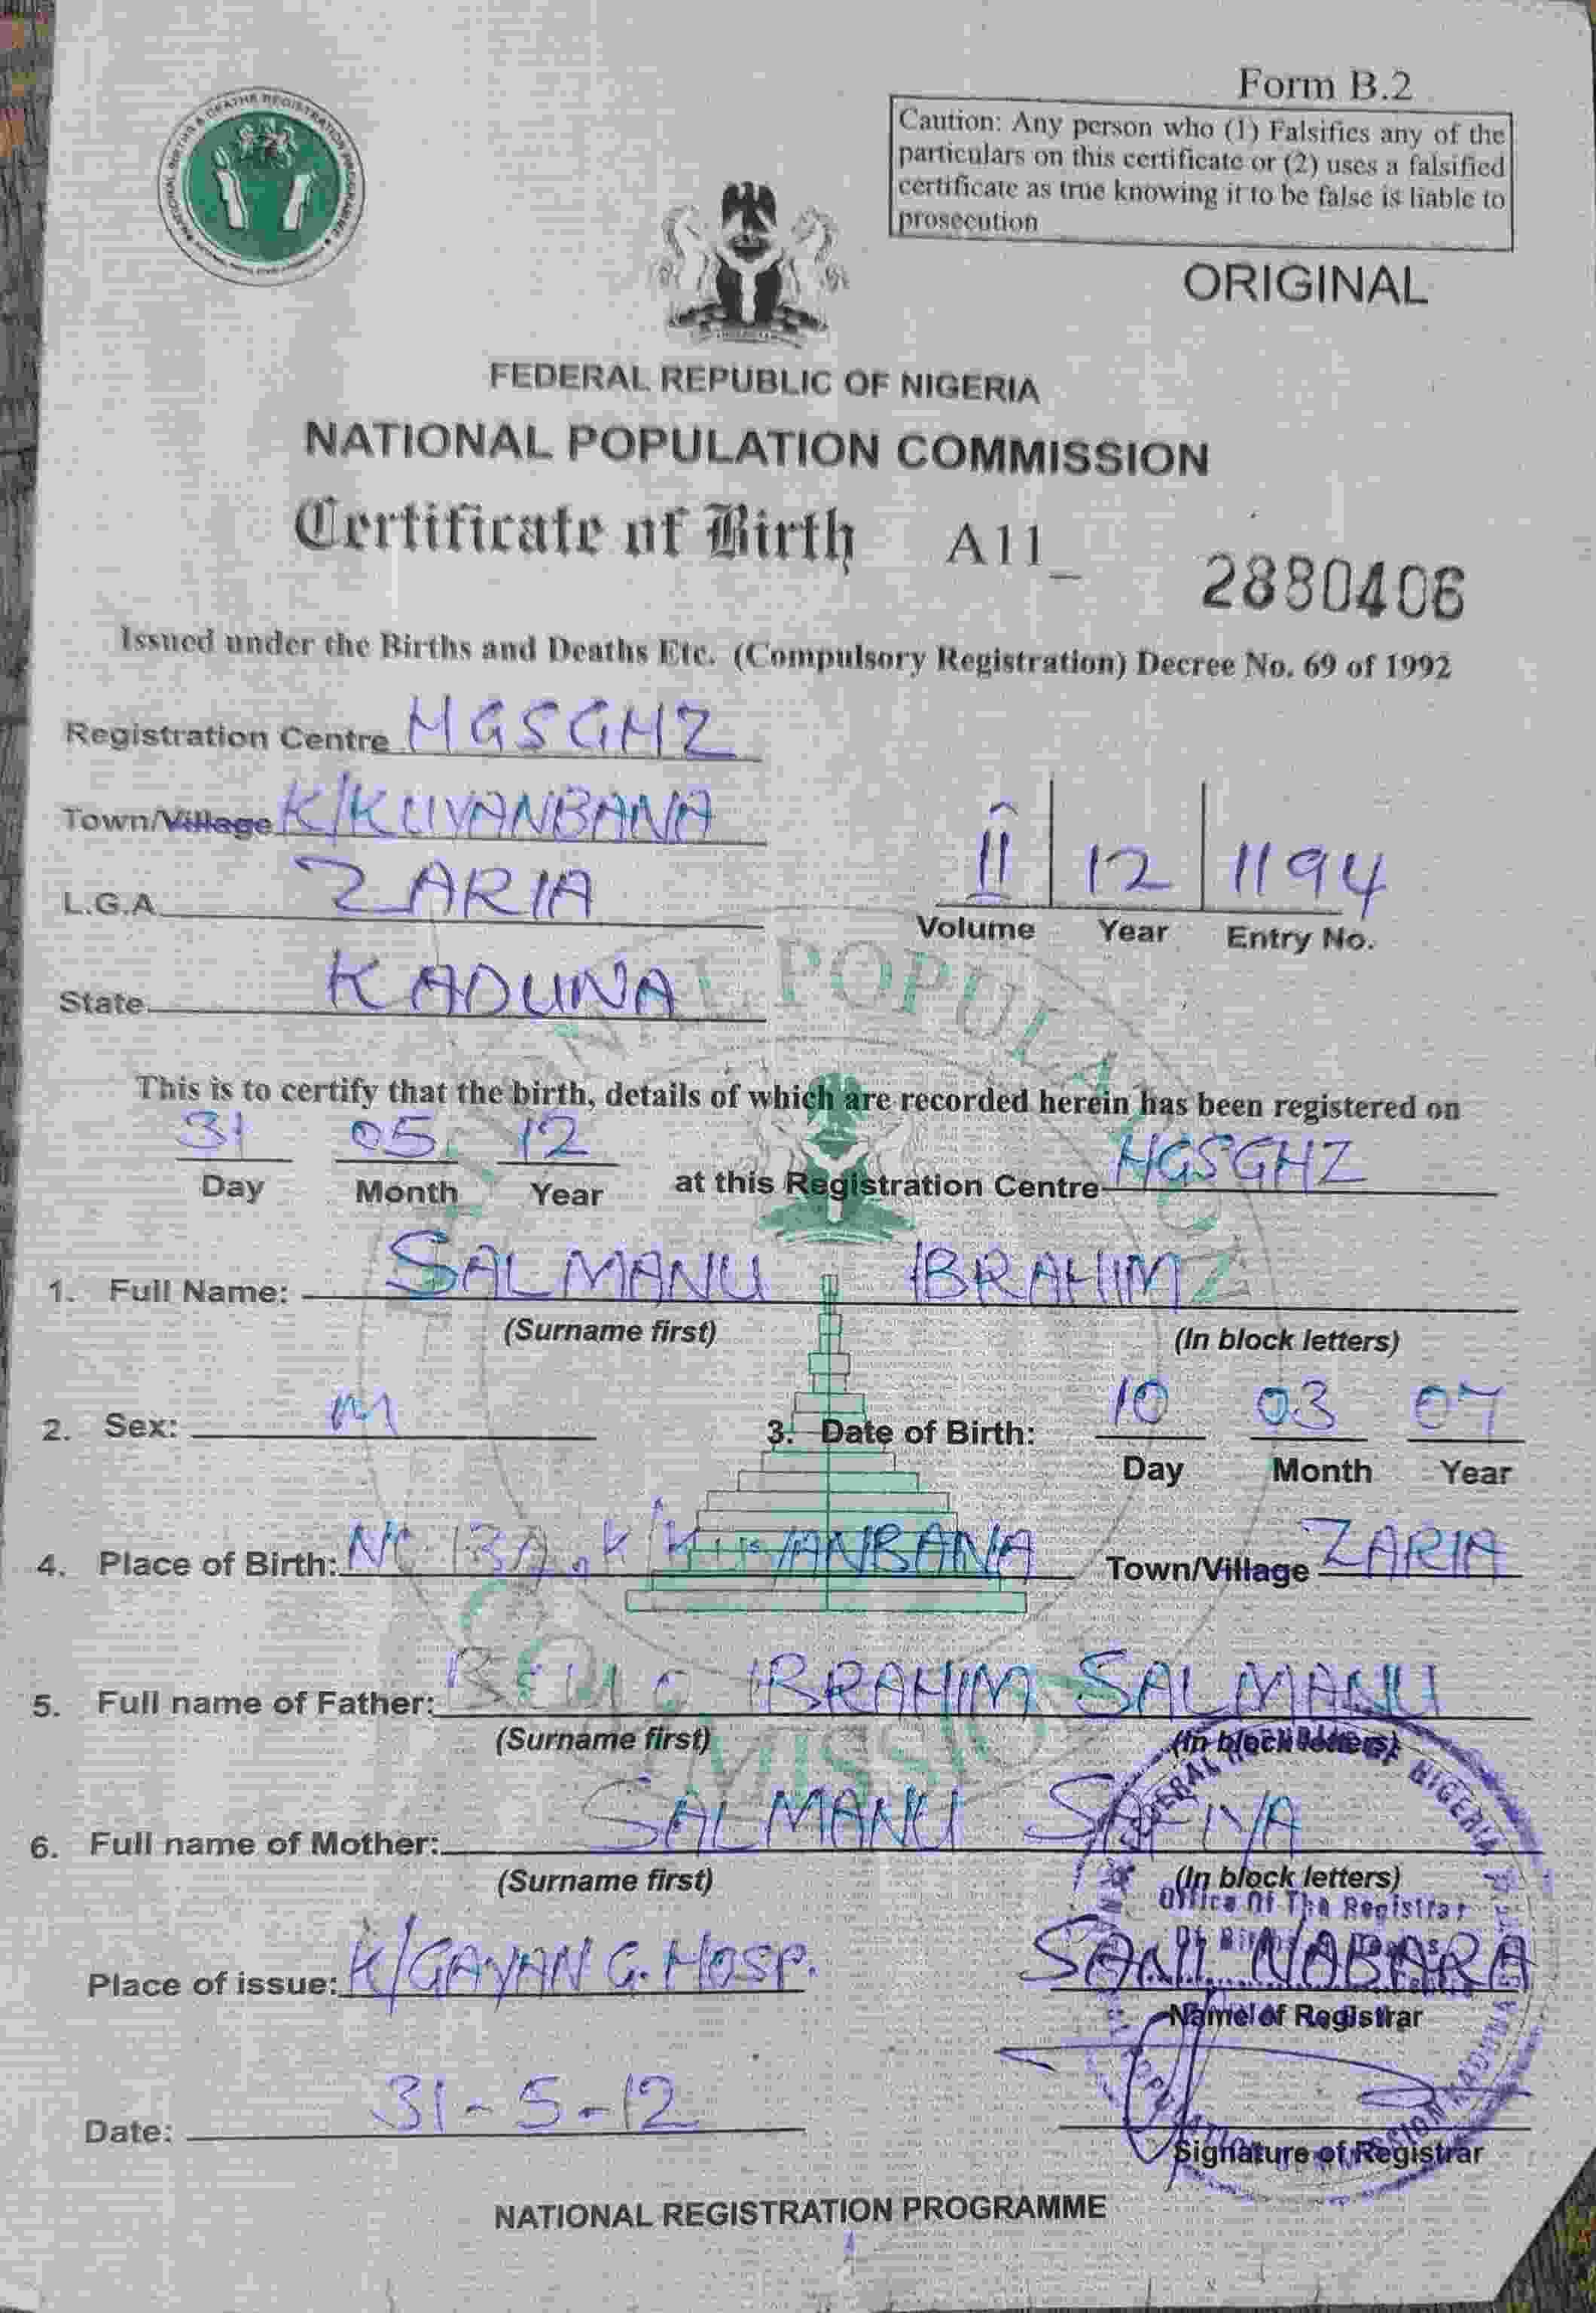 Form B.2
Caution: Any person who (1) Falsifies any of the
particulars on this certificate or (2) uses a falsified
certificate as true knowing it to be false is liable to
prosecution
ORIGINAL
FEDERAL REPUBLIC OF NIGERIA
NATIONAL POPULATION COMMISSION
Certificate of Birth A11_ 2880406
Issued under the Births and Deaths Etc. (Compulsory Registration) Decree No. 69 of 1992
Registration Centre HGSGHZ
Town/Village K/KUYANBANA
L.G.A ZARIA
II 12 1194
Volume Year Entry No.
State KADUNA
This is to certify that the birth, details of which are recorded herein has been registered on
31 05 12
Day Month Year at this Registration Centre HGSGHZ
1. Full Name: SALMANU IBRAHIM
(Surname first) (In block letters)
2. Sex: M 3. Date of Birth: 10 03 07
Day Month Year
4. Place of Birth: K/KUYANBANA Town/Village ZARIA
5. Full name of Father: IBRAHIM SALMANU
(Surname first) (In block letters)
6. Full name of Mother: SALMANU SAFIYA
(Surname first) (In block letters)
Office Of The Registrar
Place of issue: K/GAYAN G. HOSP. SANI NABARA
Name of Registrar
Date: 31-5-12
Signature of Registrar
NATIONAL REGISTRATION PROGRAMME